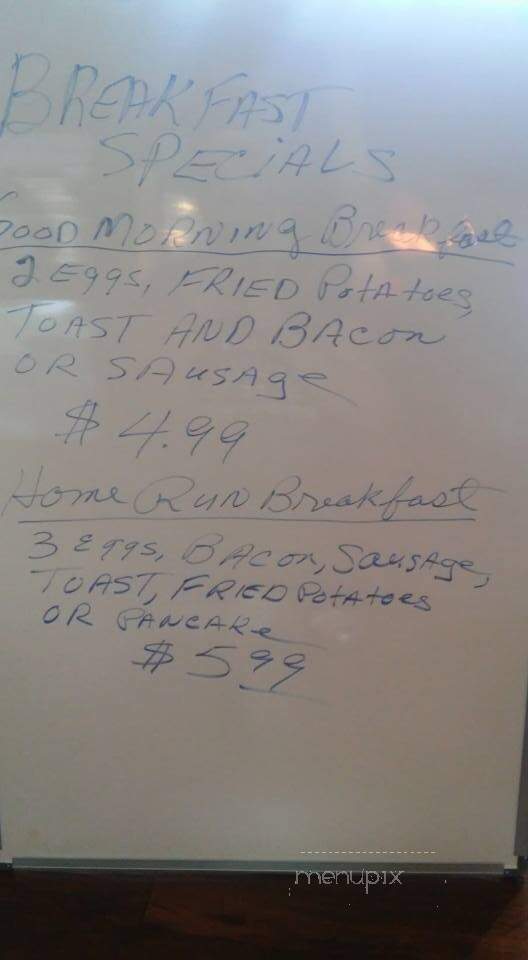 BREAKFAST
SPECiALS
GOOD MORNING Breakfast
2 Eggs, FRIED PotAtoes,
TOAST AND BACon
OR SAusAge
$ 4.99
Home RUN Breakfast
3 Eggs, BACon, SausAge,
TOAST, FRIED PotAtoes
OR PANCAKe
$ 5 99
menupix